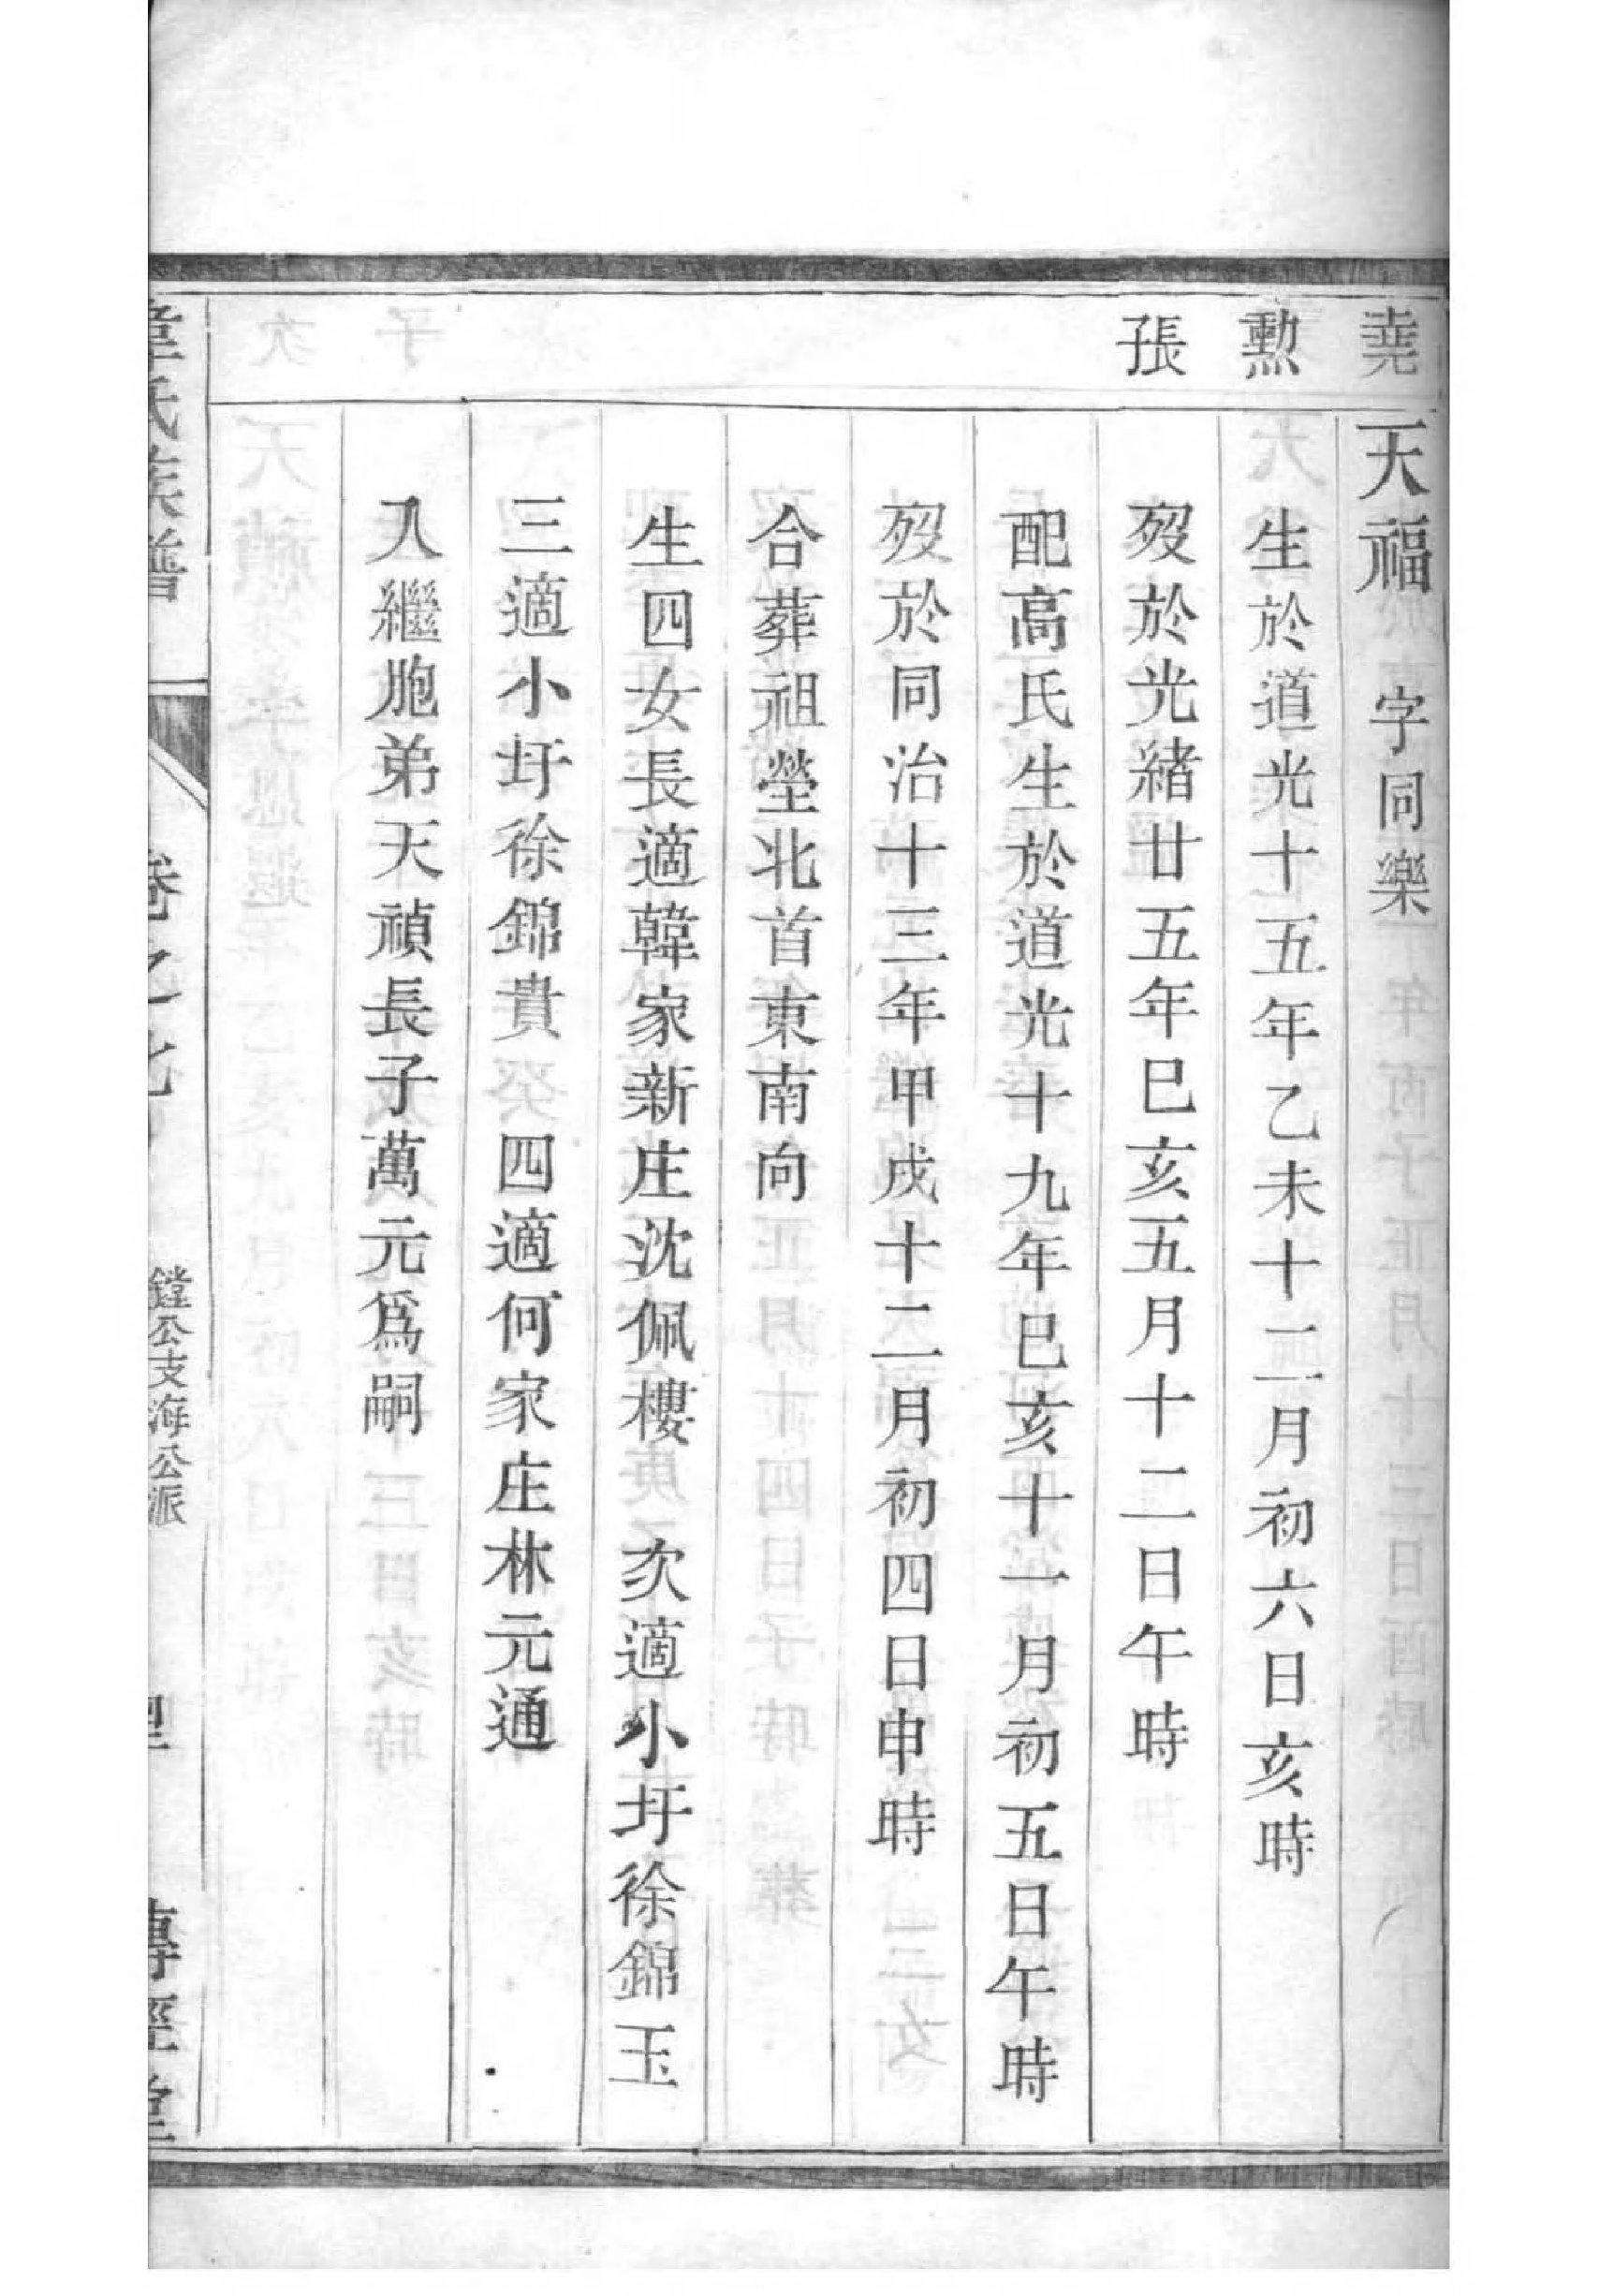 堯
勲
張
天福 字同樂
生於道光十五年乙未十二月初六日亥時
歿於光緒廿五年巳亥五月十二日午時
配高氏生於道光十九年巳亥十一月初五日午時
歿於同治十三年甲戍十二月初四日申時
合葬祖塋北首東南向
生四女長適韓家新庄沈佩樓 次適小圩徐錦玉
三適小圩徐錦貴 四適何家庄林元通
入繼胞弟天禎長子萬元爲嗣
氏族譜
卷之
鏜公支海公派
傳經堂